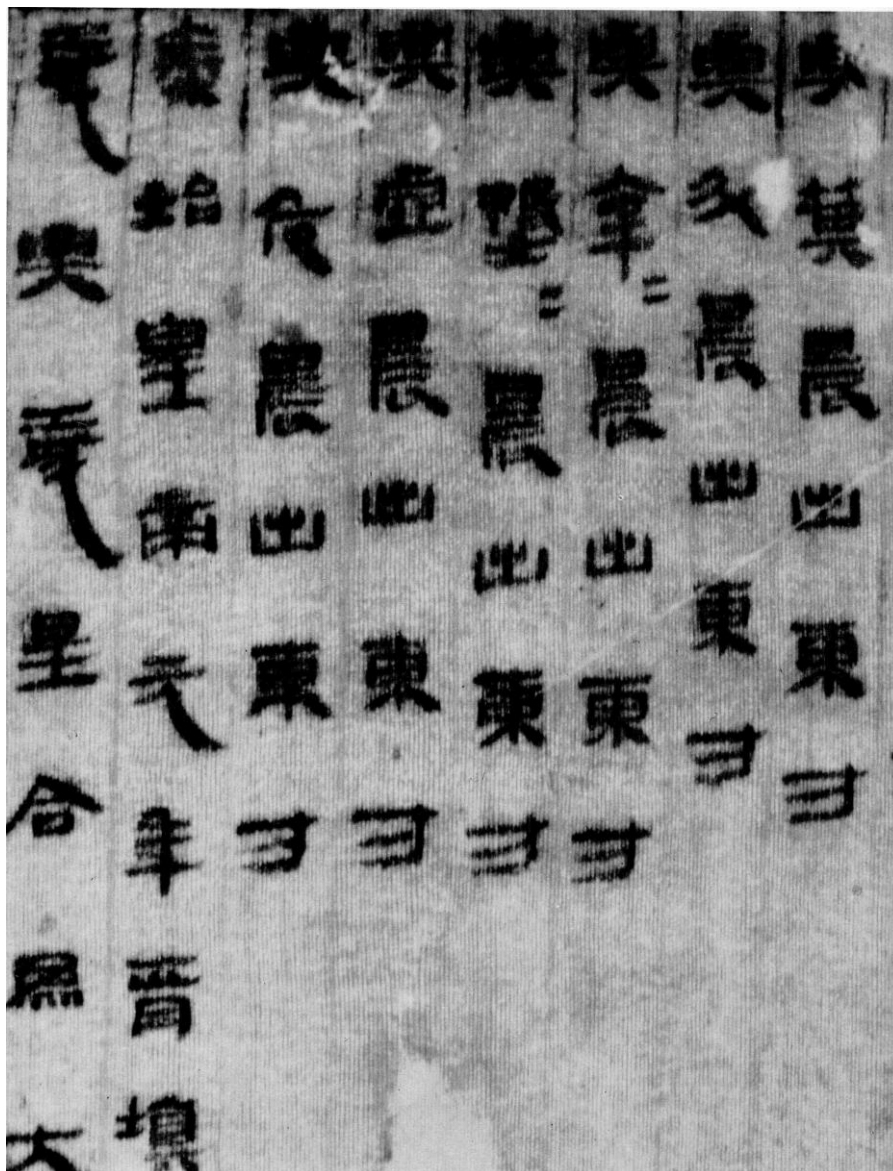 與箕晨出東方
與斗晨出東方
與牽＝晨出東方
與婺＝晨出東方
與虛晨出東方
與危晨出東方
秦始皇帝元年正月填
與星合為大